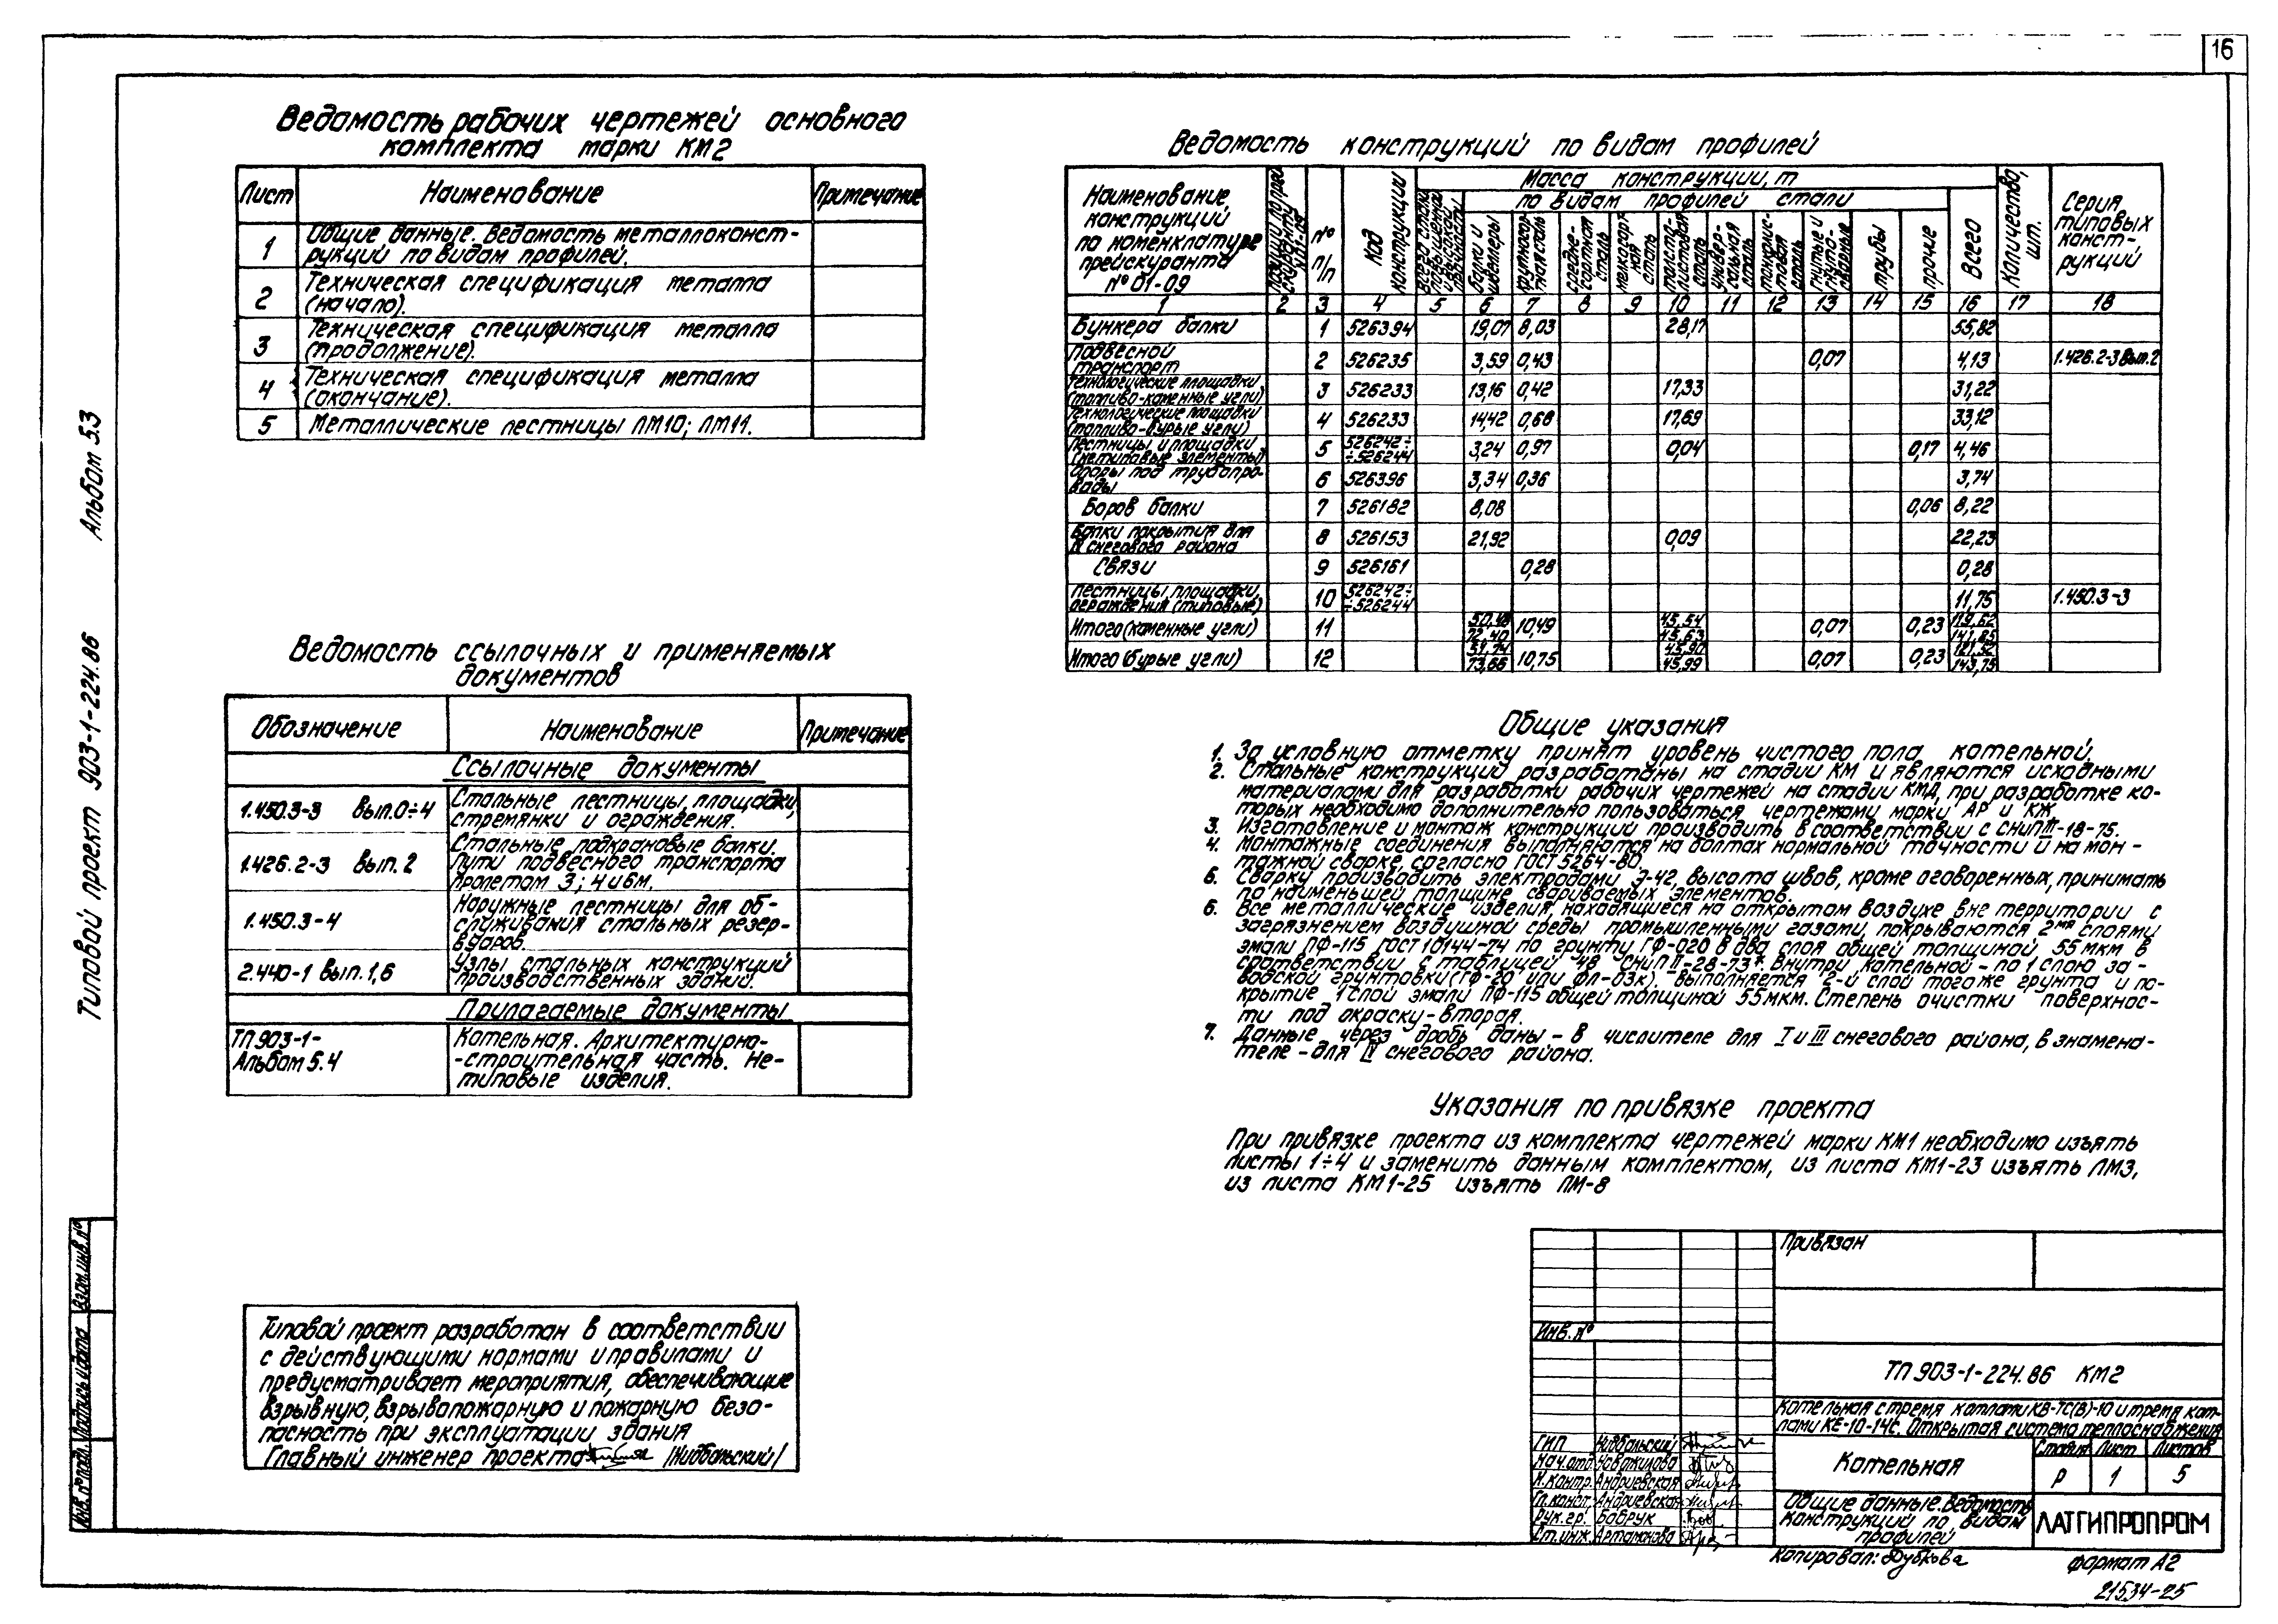 16
Альбом 5.3
Типовой проект 903-1-224.86
Взам. инв. №
Подпись и дата
Инв. № подл.
Ведомость рабочих чертежей основного
комплекта марки КМ2
Лист Наименование Примечание
1 Общие данные. Ведомость металлоконст-
рукций по видам профилей.
2 Техническая спецификация металла
(начало).
3 Техническая спецификация металла
(продолжение).
4 Техническая спецификация металла
(окончание).
5 Металлические лестницы ЛМ10; ЛМ11.
Ведомость ссылочных и применяемых
документов
Обозначение Наименование Примечание
Ссылочные документы
1.450.3-3 вып.0÷4 Стальные лестницы, площадки,
стремянки и ограждения.
Стальные подкрановые балки.
1.426.2-3 вып. 2 Пути подвесного транспорта
пролетом 3; 4 и 6м.
Наружные лестницы для об-
1.450.3-4 служивания стальных резер-
вуаров.
2.440-1 вып. 1,6 Узлы стальных конструкций
производственных зданий.
Прилагаемые документы
ТП 903-1- Котельная. Архитектурно-
Альбом 5.4 -строительная часть. Не-
типовые изделия.
Типовой проект разработан в соответствии
с действующими нормами и правилами и
предусматривает мероприятия, обеспечивающие
взрывную, взрывопожарную и пожарную безо-
пасность при эксплуатации здания
Главный инженер проекта /Нидбальский/
Ведомость конструкций по видам профилей
Наименование конструкций по номенклатуре прейскуранта № 01-09
№ п/п
Код конструкции
Масса конструкции, т
по видам профилей стали
балки и швеллеры
крупносор-тная сталь
средне-сортная сталь
мелкосорт-ная сталь
толсто-листовая сталь
универ-сальная сталь
тонколис-товая сталь
гнутые и гнуто-сварные
трубы
прочие
Всего
Количество, шт.
Серия типовых конст-рукций
1 2 3 4 5 6 7 8 9 10 11 12 13 14 15 16 17 18
Бункера балки 1 526394 19,07 8,03 28,17 55,82
Подвесной транспорт 2 526235 3,59 0,43 0,07 4,13 1.426.2-3 Вып.2
Технологические площадки (топливо-каменные угли) 3 526233 13,16 0,42 17,33 31,22
Технологические площадки (топливо-бурые угли) 4 526233 14,42 0,68 17,69 33,12
Лестницы и площадки (нетиповые элементы) 5 526242÷ ÷526244 3,24 0,97 0,04 0,17 4,46
Опоры под трубопро-воды 6 526396 3,34 0,36 3,74
Боров балки 7 526182 8,08 0,06 8,22
Балки покрытия для IV снегового района 8 526153 21,92 0,09 22,23
Связи 9 526161 0,28 0,28
Лестницы, площадки, ограждения (типовые) 10 526242÷ ÷526244 11,75 1.450.3-3
Итого (каменные угли) 11 50,48 72,40 10,49 45,54 45,63 0,07 0,23 119,62 141,85
Итого (бурые угли) 12 51,74 73,66 10,75 45,90 45,99 0,07 0,23 121,52 143,75
Общие указания
1. За условную отметку принят уровень чистого пола котельной.
2. Стальные конструкции разработаны на стадии КМ и являются исходными
материалами для разработки рабочих чертежей на стадии КМД, при разработке ко-
торых необходимо дополнительно пользоваться чертежами марки АР и КЖ.
3. Изготовление и монтаж конструкций производить в соответствии с СНиП III-18-75.
4. Монтажные соединения выполняются на болтах нормальной точности и на мон-
тажной сварке, согласно ГОСТ 5264-80
5. Сварку производить электродами Э-42, высота швов, кроме оговоренных, принимать
по наименьшей толщине свариваемых элементов.
6. Все металлические изделия, находящиеся на открытом воздухе вне территории с
загрязнением воздушной среды промышленными газами, покрываются 2мя слоями
эмали ПФ-115 ГОСТ 10144-74 по грунту ГФ-020 в два слоя общей толщиной 55 мкм в
соответствии с таблицей 48 СНиП II-28-73*. Внутри котельной - по 1 слою за-
водской грунтовки (ГФ-20 или ФЛ-03к). Выполняется 2-й слой того же грунта и по-
крытие 1 слой эмали ПФ-115 общей толщиной 55мкм. Степень очистки поверхнос-
ти под окраску - вторая.
7. Данные через дробь даны - в числителе для I и III снегового района, в знамена-
теле - для IV снегового района.
Указания по привязке проекта
При привязке проекта из комплекта чертежей марки КМ1 необходимо изъять
листы 1÷4 и заменить данным комплектом, из листа КМ1-23 изъять ЛМ3,
из листа КМ1-25 изъять ЛМ-8
Привязан
Инв. №
ТП 903-1-224.86 КМ2
Котельная с тремя котлами КВ-ТС(В)-10 и тремя кот-
лами КЕ-10-14С. Открытая система теплоснабжения
ГИП Нидбальский
Нач.отд. Новожилова
Н.контр. Андриевская
Гл.конст. Андриевская
Рук.гр. Бобрук
Ст.инж. Артамонова
Котельная
Стадия Лист Листов
Р 1 5
Общие данные. Ведомость
конструкций по видам
профилей
ЛАТГИПРОПРОМ
Копировал: Дубкова
формат А2
21534-25